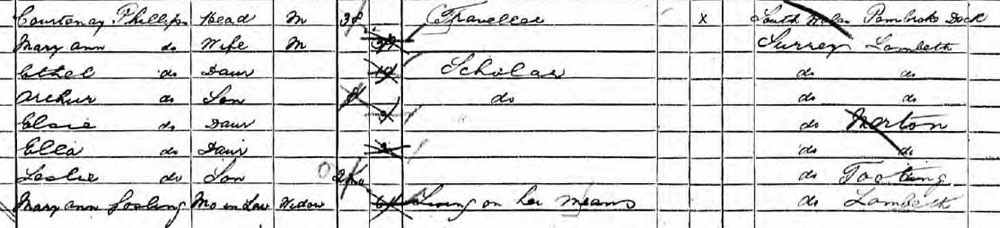 Courtenay Phillips Head M 38 Traveller X South Wales Pembroke Dock
Mary ann do Wife M Surrey Lambeth
Ethel do Daur Scholar do do
Arthur do Son do do do
Elsie do Daur do Merton
Ella do Daur do do
Leslie do Son 2 mo do Tooting
Mary ann Gosling Mo in Law Widow Living on her means do Lambeth